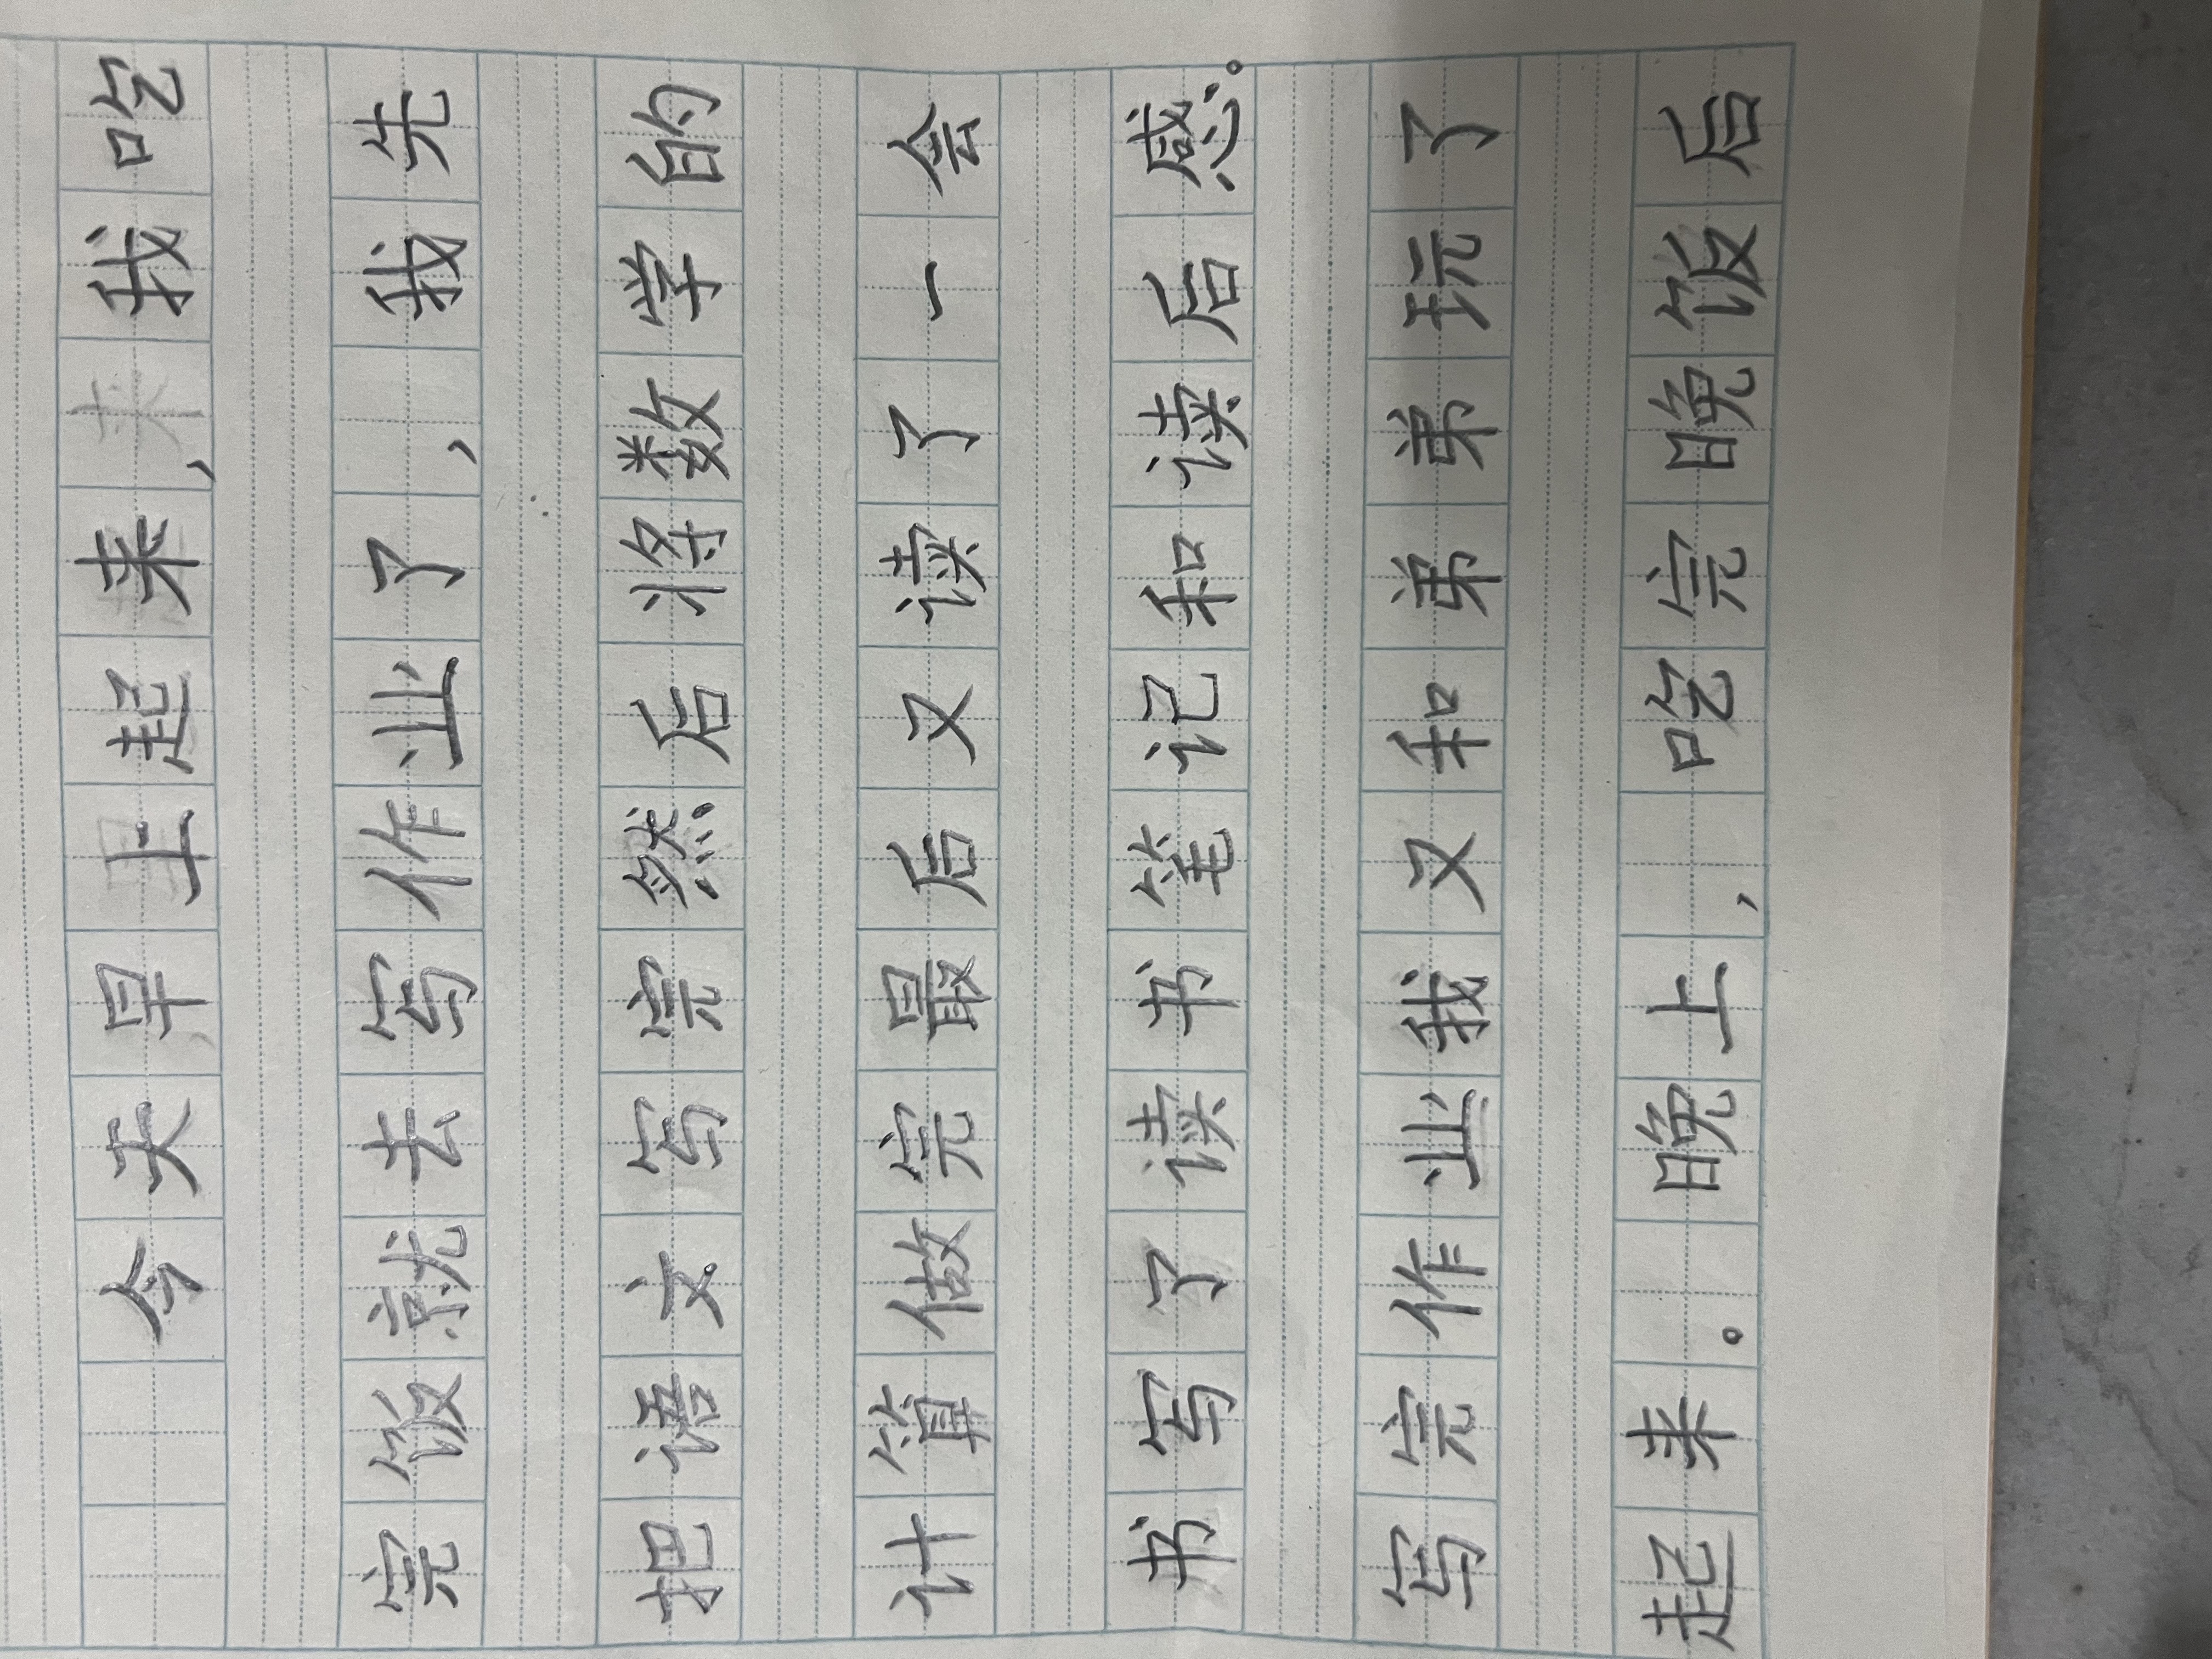 今天早上起来,我吃
完饭就去写作业了,我先
把语文写完然后将数学的
计算做完最后又读了一会
书写了读书笔记和读后感。
写完作业我又和弟弟玩了
起来。晚上,吃完晚饭后